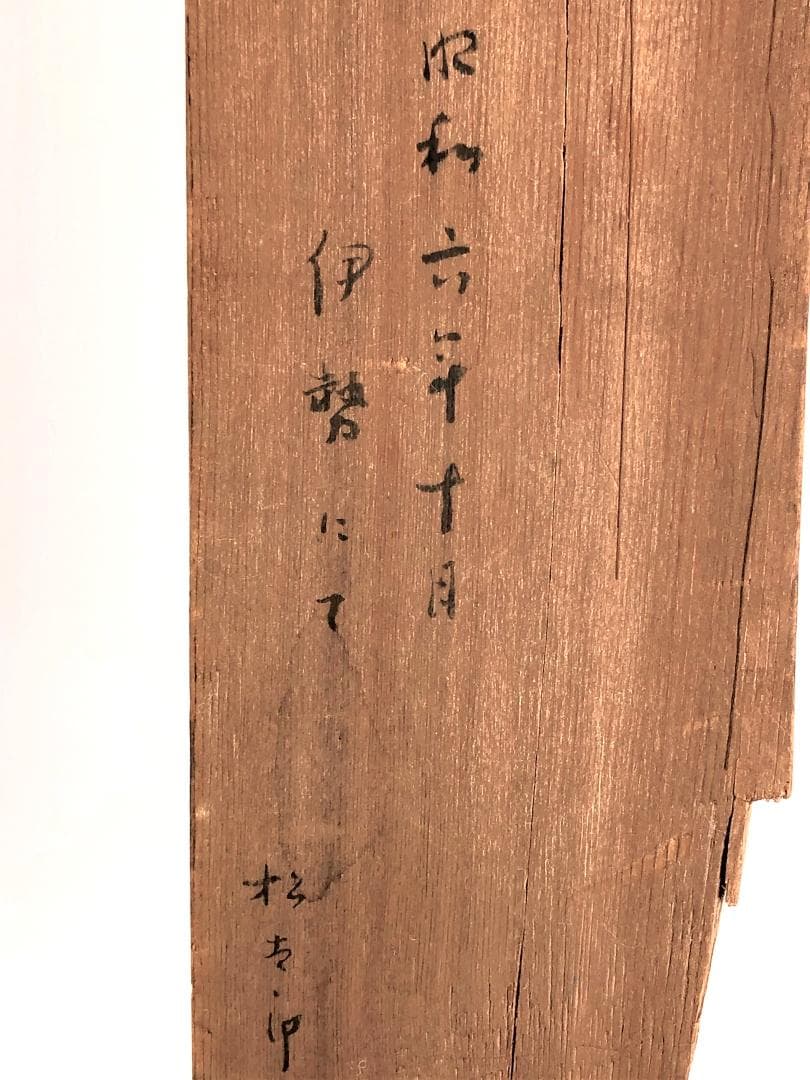 昭和六年十月
伊勢にて
松太郎